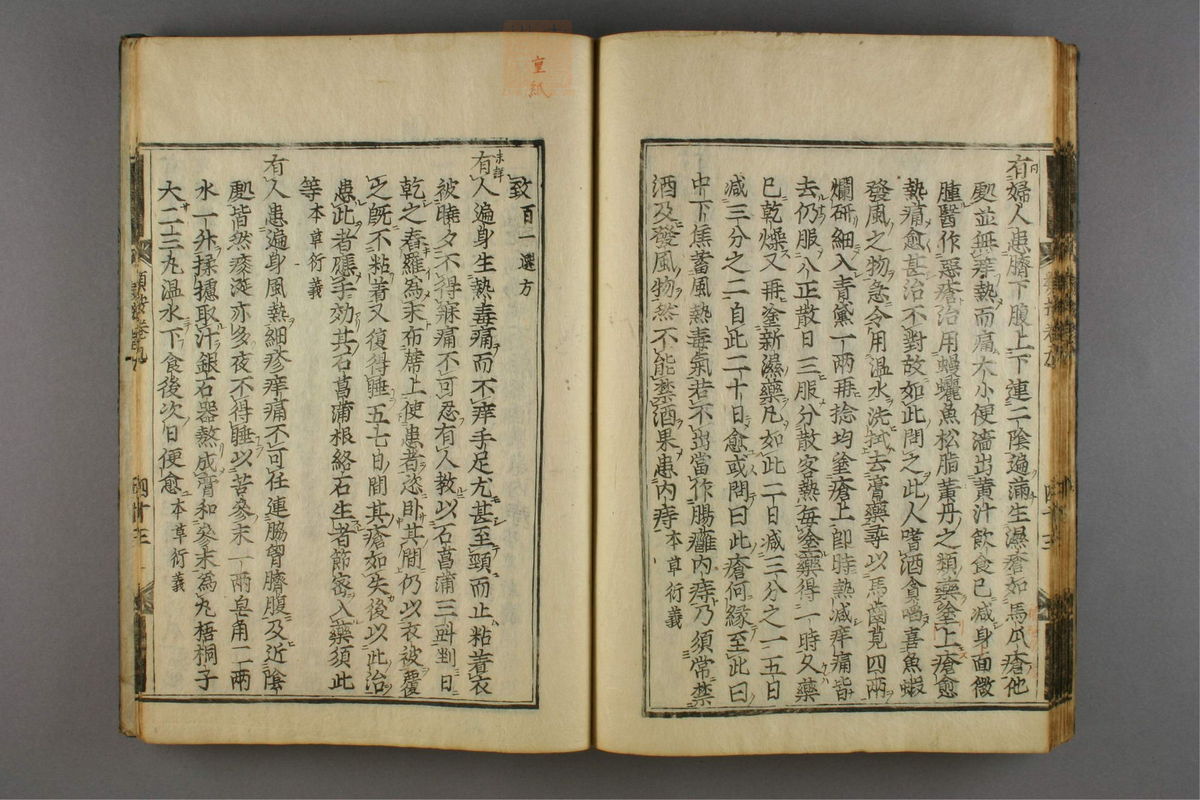 有婦人患臍下腹上下連二陰遍滿生濕瘡如馬瓜瘡他
處並無痒熱而痛大小便濇出黃汁飲食已減身面微
腫醫作惡瘡治用鰻鱺魚松脂黃丹之類藥塗上瘡愈
熱痛愈甚治不對故如此問之此人嗜酒貪啗喜魚蝦
發風之物急令用溫水洗拭去膏藥尋以馬齒莧四兩
爛研細入青黛一兩再捻均塗瘡上即時熱減痒痛皆
去仍服八正散日三服分散客熱每塗藥得一時久藥
已乾燥又再塗新濕藥凡如此二日減三分之一五日
減三分之二自此二十日愈或問曰此瘡何緣至此曰
中下焦蓄風熱毒氣若不出當作腸癰內痔乃須常禁
酒及發風物然不能禁酒果患內痔 本草衍義
致 百一選方
未詳
有人遍身生熱毒痛而不痒手足尤甚至頸而止粘着衣
被曉夕不得寐痛不可忍有人教以石菖蒲三斗剉日
乾之舂羅為末布席上使患者恣臥其間仍以衣被覆
之既不粘着又復得睡五七日間其瘡如失後以此治
患此者應手効其石菖蒲根絡石生者節密入藥須此
等 本草衍義
有人患遍身風熱細疹痒痛不可任連脇胷臍腹及近陰
處皆然痰涎亦多夜不得睡以苦參末一兩皂角二兩
水一升揉攄取汁銀石器熬成膏和參末為丸梧桐子
大二三十丸溫水下食後次日便愈 本草衍義
四十三
重紙